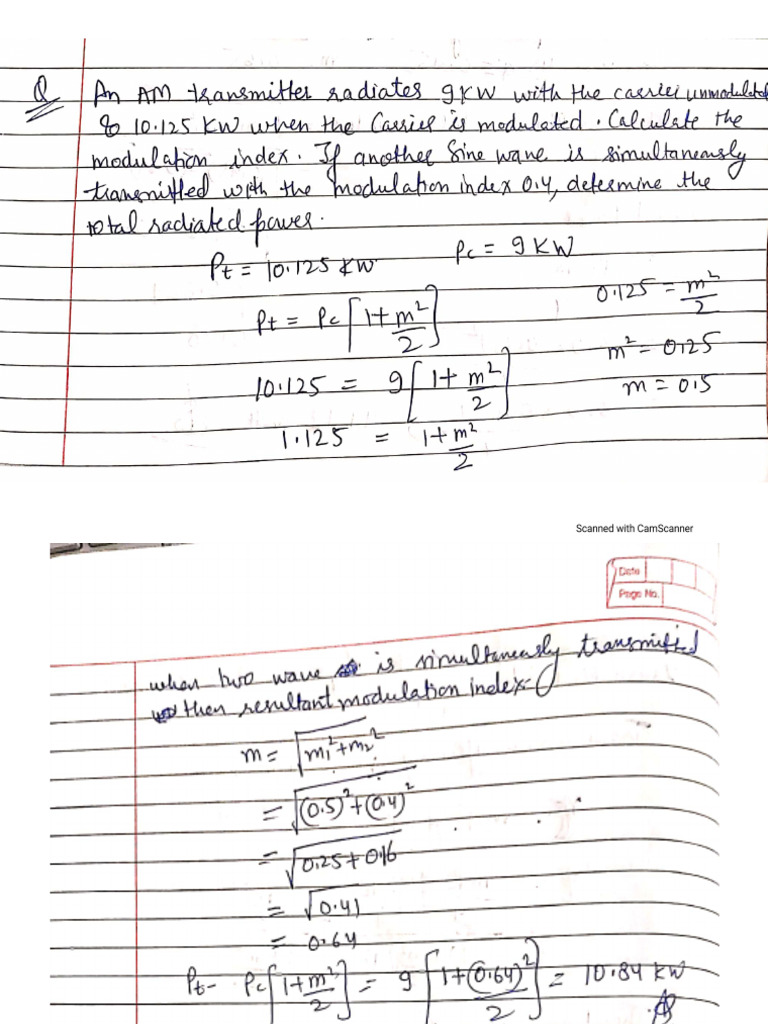 Q An AM transmitter radiates 9KW with the carrier unmodulated
& 10.125 KW when the Carrier is modulated. Calculate the
modulation index. If another Sine wave is simultaneously
transmitted with the modulation index 0.4, determine the
total radiated power.
Pt = 10.125 KW Pc = 9 KW
Pt = Pc [1+ m²/2] 0.125 = m²/2
10.125 = 9 [1+ m²/2] m² = 0.25
1.125 = 1+ m²/2 m = 0.5
Scanned with CamScanner
Date
Page No.
when two wave is simultaneously transmitted
then resultant modulation index:-
m = √m₁²+m₂²
= √(0.5)²+(0.4)²
= √0.25+0.16
= √0.41
= 0.64
Pt- Pc [1+ m²/2] = 9 [1+(0.64)²/2] = 10.84 KW